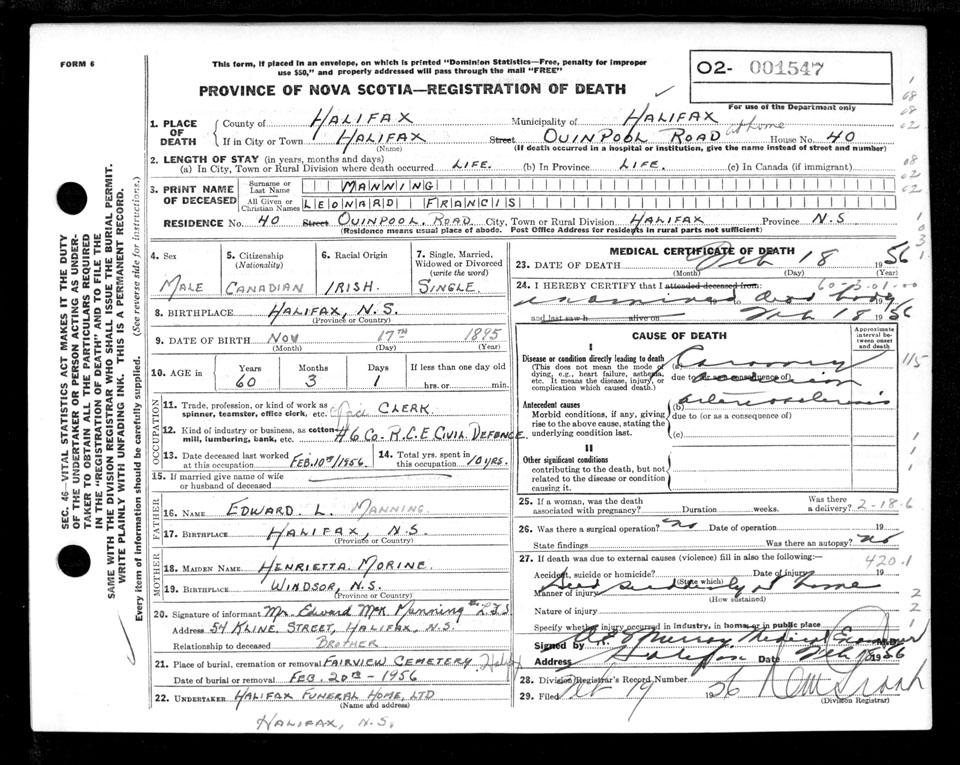 FORM 6
This form, if placed in an envelope, on which is printed "Dominion Statistics—Free, penalty for improper
use $50," and properly addressed will pass through the mail "FREE"
O2- 001547
For use of the Department only
PROVINCE OF NOVA SCOTIA—REGISTRATION OF DEATH
SEC. 46—VITAL STATISTICS ACT MAKES IT THE DUTY
OF THE UNDERTAKER OR PERSON ACTING AS UNDER-
TAKER TO OBTAIN ALL THE PARTICULARS REQUIRED
IN THE "REGISTRATION OF DEATH" AND TO FILE THE
SAME WITH THE DIVISION REGISTRAR WHO SHALL ISSUE THE BURIAL PERMIT.
WRITE PLAINLY WITH UNFADING INK. THIS IS A PERMANENT RECORD.
Every item of information should be carefully supplied. (See reverse side for instructions.)
1. PLACE OF DEATH County of HALIFAX Municipality of HALIFAX
If in City or Town HALIFAX (Name) Street QUINPOOL ROAD at home House No. 40
(If death occurred in a hospital or institution, give the name instead of street and number)
2. LENGTH OF STAY (in years, months and days)
(a) In City, Town or Rural Division where death occurred LIFE. (b) In Province LIFE. (c) In Canada (if immigrant)
3. PRINT NAME OF DECEASED Surname or Last Name MANNING
All Given or Christian Names LEONARD FRANCIS
RESIDENCE No. 40 Street QUINPOOL ROAD City, Town or Rural Division HALIFAX Province N.S
(Residence means usual place of abode. Post Office Address for residents in rural parts not sufficient)
4. Sex MALE
5. Citizenship (Nationality) CANADIAN
6. Racial Origin IRISH.
7. Single, Married, Widowed or Divorced (write the word) SINGLE.
8. BIRTHPLACE HALIFAX, N.S.
(Province or Country)
9. DATE OF BIRTH NOV 17TH 1895
(Month) (Day) (Year)
10. AGE in Years 60 Months 3 Days 1 If less than one day old hrs. or min.
OCCUPATION
11. Trade, profession, or kind of work as
spinner, teamster, office clerk, etc. CLERK.
12. Kind of industry or business, as cotton-
mill, lumbering, bank, etc. H6 CO. R.C.E CIVIL DEFENCE
13. Date deceased last worked at this occupation FEB. 10TH/1956.
14. Total yrs. spent in this occupation 10 YRS.
15. If married give name of wife
or husband of deceased
FATHER
16. NAME EDWARD L. MANNING.
17. BIRTHPLACE HALIFAX, N.S
(Province or Country)
MOTHER
18. MAIDEN NAME HENRIETTA MORINE
19. BIRTHPLACE WINDSOR, N.S.
(Province or Country)
20. Signature of informant Mr. Edward McK Manning
Address 54 KLINE, STREET, HALIFAX, N.S.
Relationship to deceased BROTHER
21. Place of burial, cremation or removal FAIRVIEW CEMETERY Halifax
Date of burial or removal FEB. 20TH - 1956
22. UNDERTAKER HALIFAX FUNERAL HOME, LTD
(Name and address)
HALIFAX, N.S.
MEDICAL CERTIFICATE OF DEATH
23. DATE OF DEATH Feb 18 1956
(Month) (Day) (Year)
24. I HEREBY CERTIFY that I attended deceased from:
examined dead body
and last saw h alive on Feb 18 1956
CAUSE OF DEATH
Approximate interval between onset and death
I
Disease or condition directly leading to death
(This does not mean the mode of
dying, e.g., heart failure, asthenia,
etc. It means the disease, injury, or
complication which caused death.)
(a) Coronary
due to (or as consequence of)
Antecedent causes
Morbid conditions, if any, giving
rise to the above cause, stating the
underlying condition last.
(b) arteriosclerosis
due to (or as a consequence of)
(c)
II
Other significant conditions
contributing to the death, but not
related to the disease or condition
causing it.
25. If a woman, was the death
associated with pregnancy? Duration weeks. Was there a delivery? 2-18-6
26. Was there surgical operation? No Date of operation 19
State findings Was there an autopsy? No
27. If death was due to external causes (violence) fill in also the following: 420.1
Accident, suicide or homicide? (State which) Date of injury 19
Manner of injury Died suddenly at home
(How sustained)
Nature of injury
Specify whether injury occurred in industry, in home, or in public place
Signed by Murray Medical Examiner M.D.
Address Halifax Date Feb 18 1956
28. Division Registrar's Record Number
29. Filed Feb 19 1956
(Division Registrar)